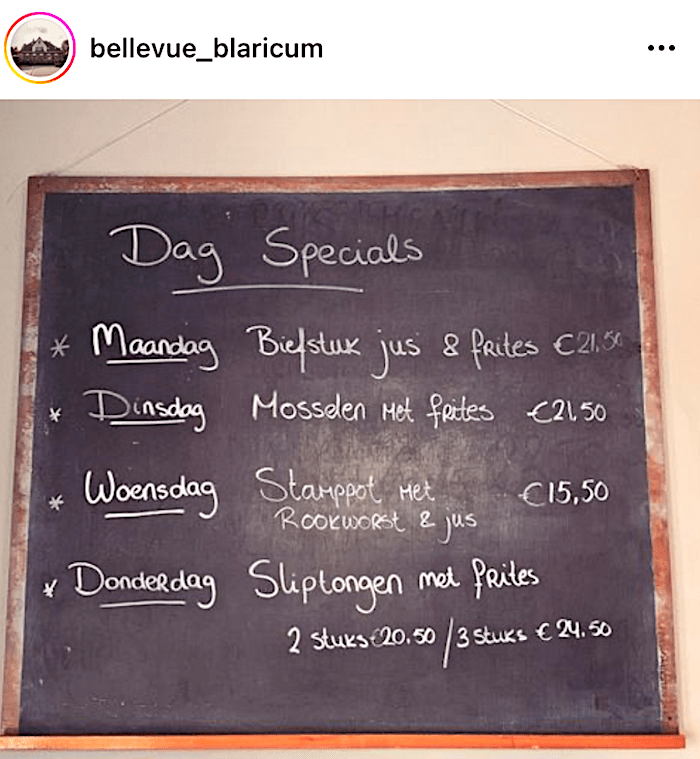 bellevue_blaricum
Dag Specials
* Maandag Biefstuk jus & frites €21.50
* Dinsdag Mosselen met frites €21.50
* Woensdag Stamppot met €15,50
Rookworst & jus
* Donderdag Sliptongen met frites
2 stuks €20.50 / 3 stuks € 24.50